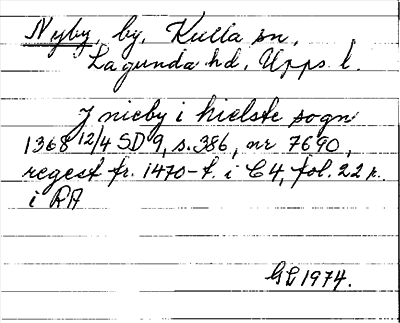 Nyby, by, Kulla sn,
Lagunda hd, Upps. l.
J nieby i hielste sogn
1368 12/4 SD 9, s. 386, nr 7690,
regest fr. 1470-t. i C 4, fol. 22 r.
i RA
GL 1974.